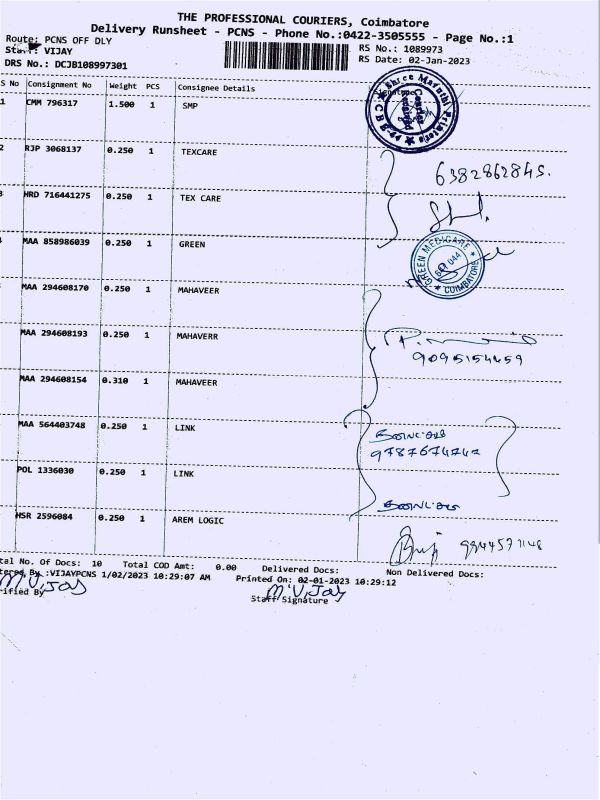 THE PROFESSIONAL COURIERS, Coimbatore
Delivery Runsheet - PCNS - Phone No.:0422-3505555 - Page No.:1
Route: PCNS OFF DLY
RS No.: 1089973
Staff: VIJAY
RS Date: 02-Jan-2023
DRS No.: DCJB108997301
S No Consignment No Weight PCS Consignee Details Signature
1 CMM 796317 1.500 1 SMP
Shree Maruthi Printers
2 RJP 3068137 0.250 1 TEXCARE
6382862845.
3 HRD 716441275 0.250 1 TEX CARE
MAA 858986039 0.250 1 GREEN
GREEN MEDICARE
COIMBATORE
MAA 294608170 1 MAHAVEER
MAA 294608193 0.250 1 MAHAVERR
9095154459
MAA 294608154 0.310 1 MAHAVEER
MAA 564403748 0.250 1 LINK
9787674747
POL 1336030 0.250 1 LINK
HSR 2596084 0.250 1 AREM LOGIC
9944571148
tal No. Of Docs: 10 Total COD Amt: 0.00 Delivered Docs: Non Delivered Docs:
tered By :VIJAYPCNS 1/02/2023 10:29:07 AM Printed On: 02-01-2023 10:29:12
M.Vijay
M.Vijay
rified By
Staff Signature